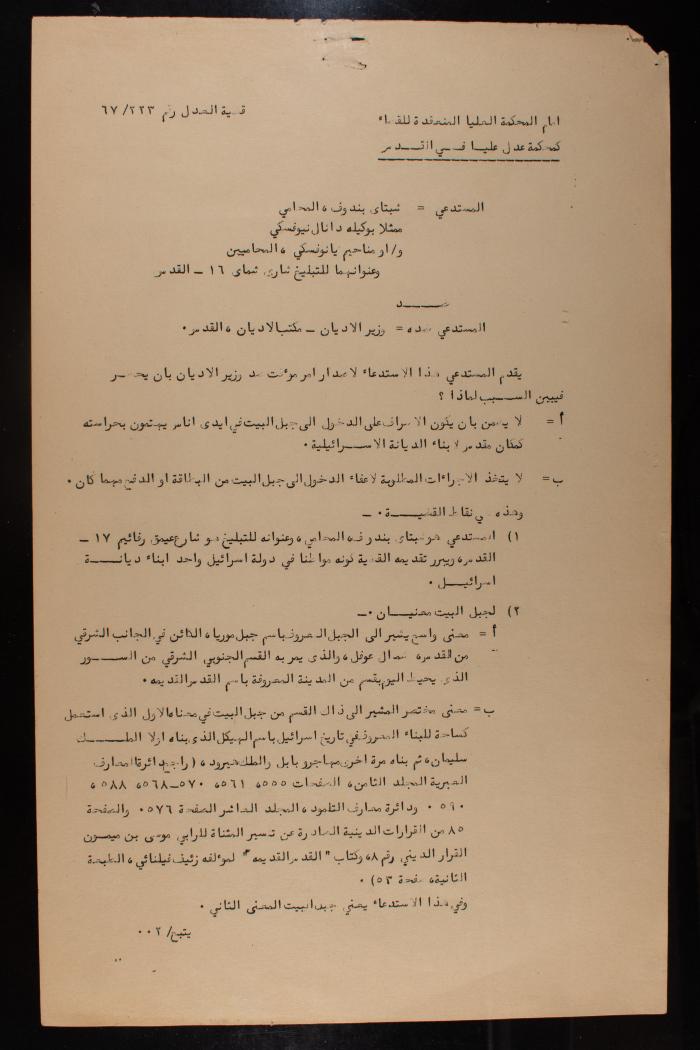 امام المحكمة العليا المنعقدة للقضاء
قضية العدل رقم ٦٧/٢٢٣
كمحكمة عدل عليا في القدس
المستدعي = شبتاي بندوف، المحامي
ممثلا بوكيله دانال نيوفسكي
و/او مناحيم يانوفسكي، المحاميين
وعنوانهما للتبليغ شارع شماي ١٦ ــ القدس
ضــد
المستدعي ضده = وزير الاديان ــ مكتب الاديان، القدس.
يقدم المستدعي هذا الاستدعاء لاصدار امر مؤقت ضد وزير الاديان بان يحضر
فيبين السبب لماذا ؟
أ= لا يضمن بان يكون الاشراف على الدخول الى جبل البيت في ايدى اناس يهتمون بحراسته
كمكان مقدس لابناء الديانة الاسرائيلية.
ب= لا يتخذ الاجراءات المطلوبة لاعفاء الدخول الى جبل البيت من البطاقة او الدفع مهما كان.
وهذه هي نقاط القضية. ــ
١) المستدعي هو شبتاي بندوف، المحامي، وعنوانه للتبليغ هو شارع عيمق رفائيم ١٧ ــ
القدس، ويبرر تقديمه القضية كونه مواطنا في دولة اسرائيل واحد ابناء ديانة
اسرائيل.
٢) لجبل البيت معنيان. ــ
أ= معنى واسع يشير الى الجبل المعروف باسم جبل موريا، الكائن في الجانب الشرقي
من القدس، شمال عوفل، والذى يمر به القسم الجنوبي الشرقي من السور
الذى يحيط اليوم بقسم من المدينة المعروفة باسم القدس القديمه.
ب= معنى مختصر المشير الى ذاك القسم من جبل البيت في معناه الاول الذى استعمل
كساحة للبناء المعروف في تاريخ اسرائيل باسم الهيكل الذى بناه اولا الملك
سليمان، ثم بناه مرة اخرى مهاجرو بابل والملك هيرود، (راجع دائرة المعارف
العبرية المجلد الثامن، الصفحات ٥٥٥، ٥٦١، ٥٧٠ــ٥٦٨، ٥٨٨،
٥٩٠. ودائرة معارف التلمود، المجلد العاشر الصفحة ٥٧٦. والصفحة
٨٥ من القرارات الدينية الصادرة عن تفسير المثناة للرابي موسى بن ميمون
القرار الديني رقم ٨، وكتاب "القدس القديمه" لمؤلفه زئيف فيلنائي، الطبعة
الثانية، صفحة ٥٣).
وفي هذا الاستدعاء يعني جبل البيت المعنى الثاني.
يتبع/ ٢..